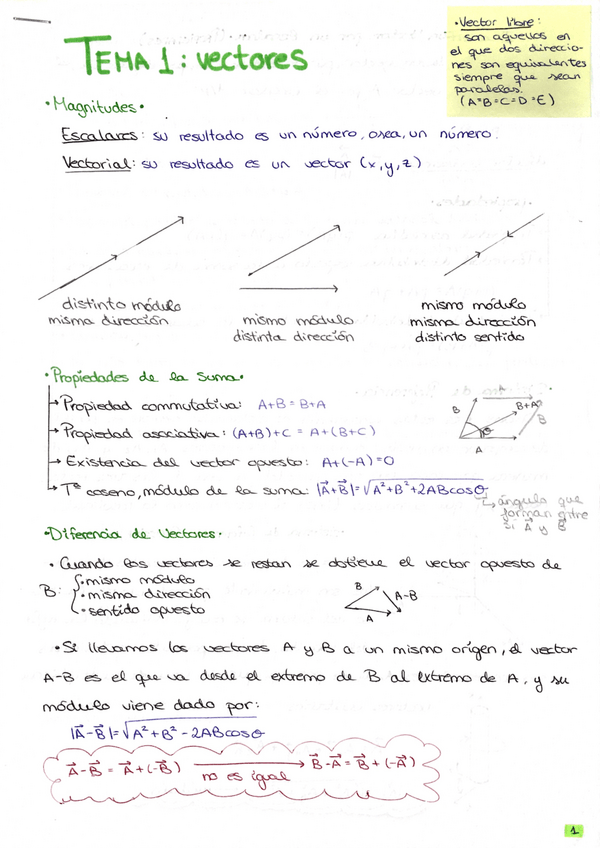 TEMA 1: vectores
• Vector libre:
son aquellos en
el que dos direccio-
nes son equivalentes
siempre que sean
paralelas.
(A=B=C=D=E)
• Magnitudes •
Escalares: su resultado es un número, osea, un número.
Vectorial: su resultado es un vector (x,y,z)
distinto módulo
misma dirección
mismo módulo
distinta dirección
mismo módulo
misma dirección
distinto sentido
• Propiedades de la suma •
→ Propiedad conmutativa: A+B=B+A
→ Propiedad asociativa: (A+B)+C = A+(B+C)
→ Existencia del vector opuesto: A+(-A)=0
→ Tª coseno, módulo de la suma: |A⃗+B⃗|=√A²+B²+2ABcosθ
↳ ángulo que
forman entre
sí A⃗ y B⃗
A
B
B+A
B
θ
A
• Diferencia de Vectores •
• Cuando los vectores se restan se obtiene el vector opuesto de
B: { • mismo módulo
• misma dirección
• sentido opuesto
B
A-B
A
• Si llevamos los vectores A y B a un mismo origen, el vector
A-B es el que va desde el extremo de B al extremo de A, y su
módulo viene dado por:
|A⃗-B⃗|=√A²+B²-2ABcosθ
A⃗-B⃗ = A⃗+(-B⃗) → B⃗-A⃗ = B⃗+(-A⃗)
no es igual
1